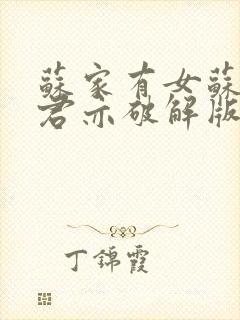 蘇家有女蘇
君亦破解版
丁錦霞